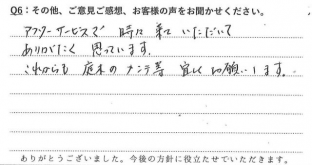 Q6：その他、ご意見ご感想、お客様の声をお聞かせください。
アフターサービスで 時々 来て いただいて
ありがたく 思っています。
これからも 庭木の メンテ等 宜しくお願いします。
ありがとうございました。今後の方針に役立たせていただきます。